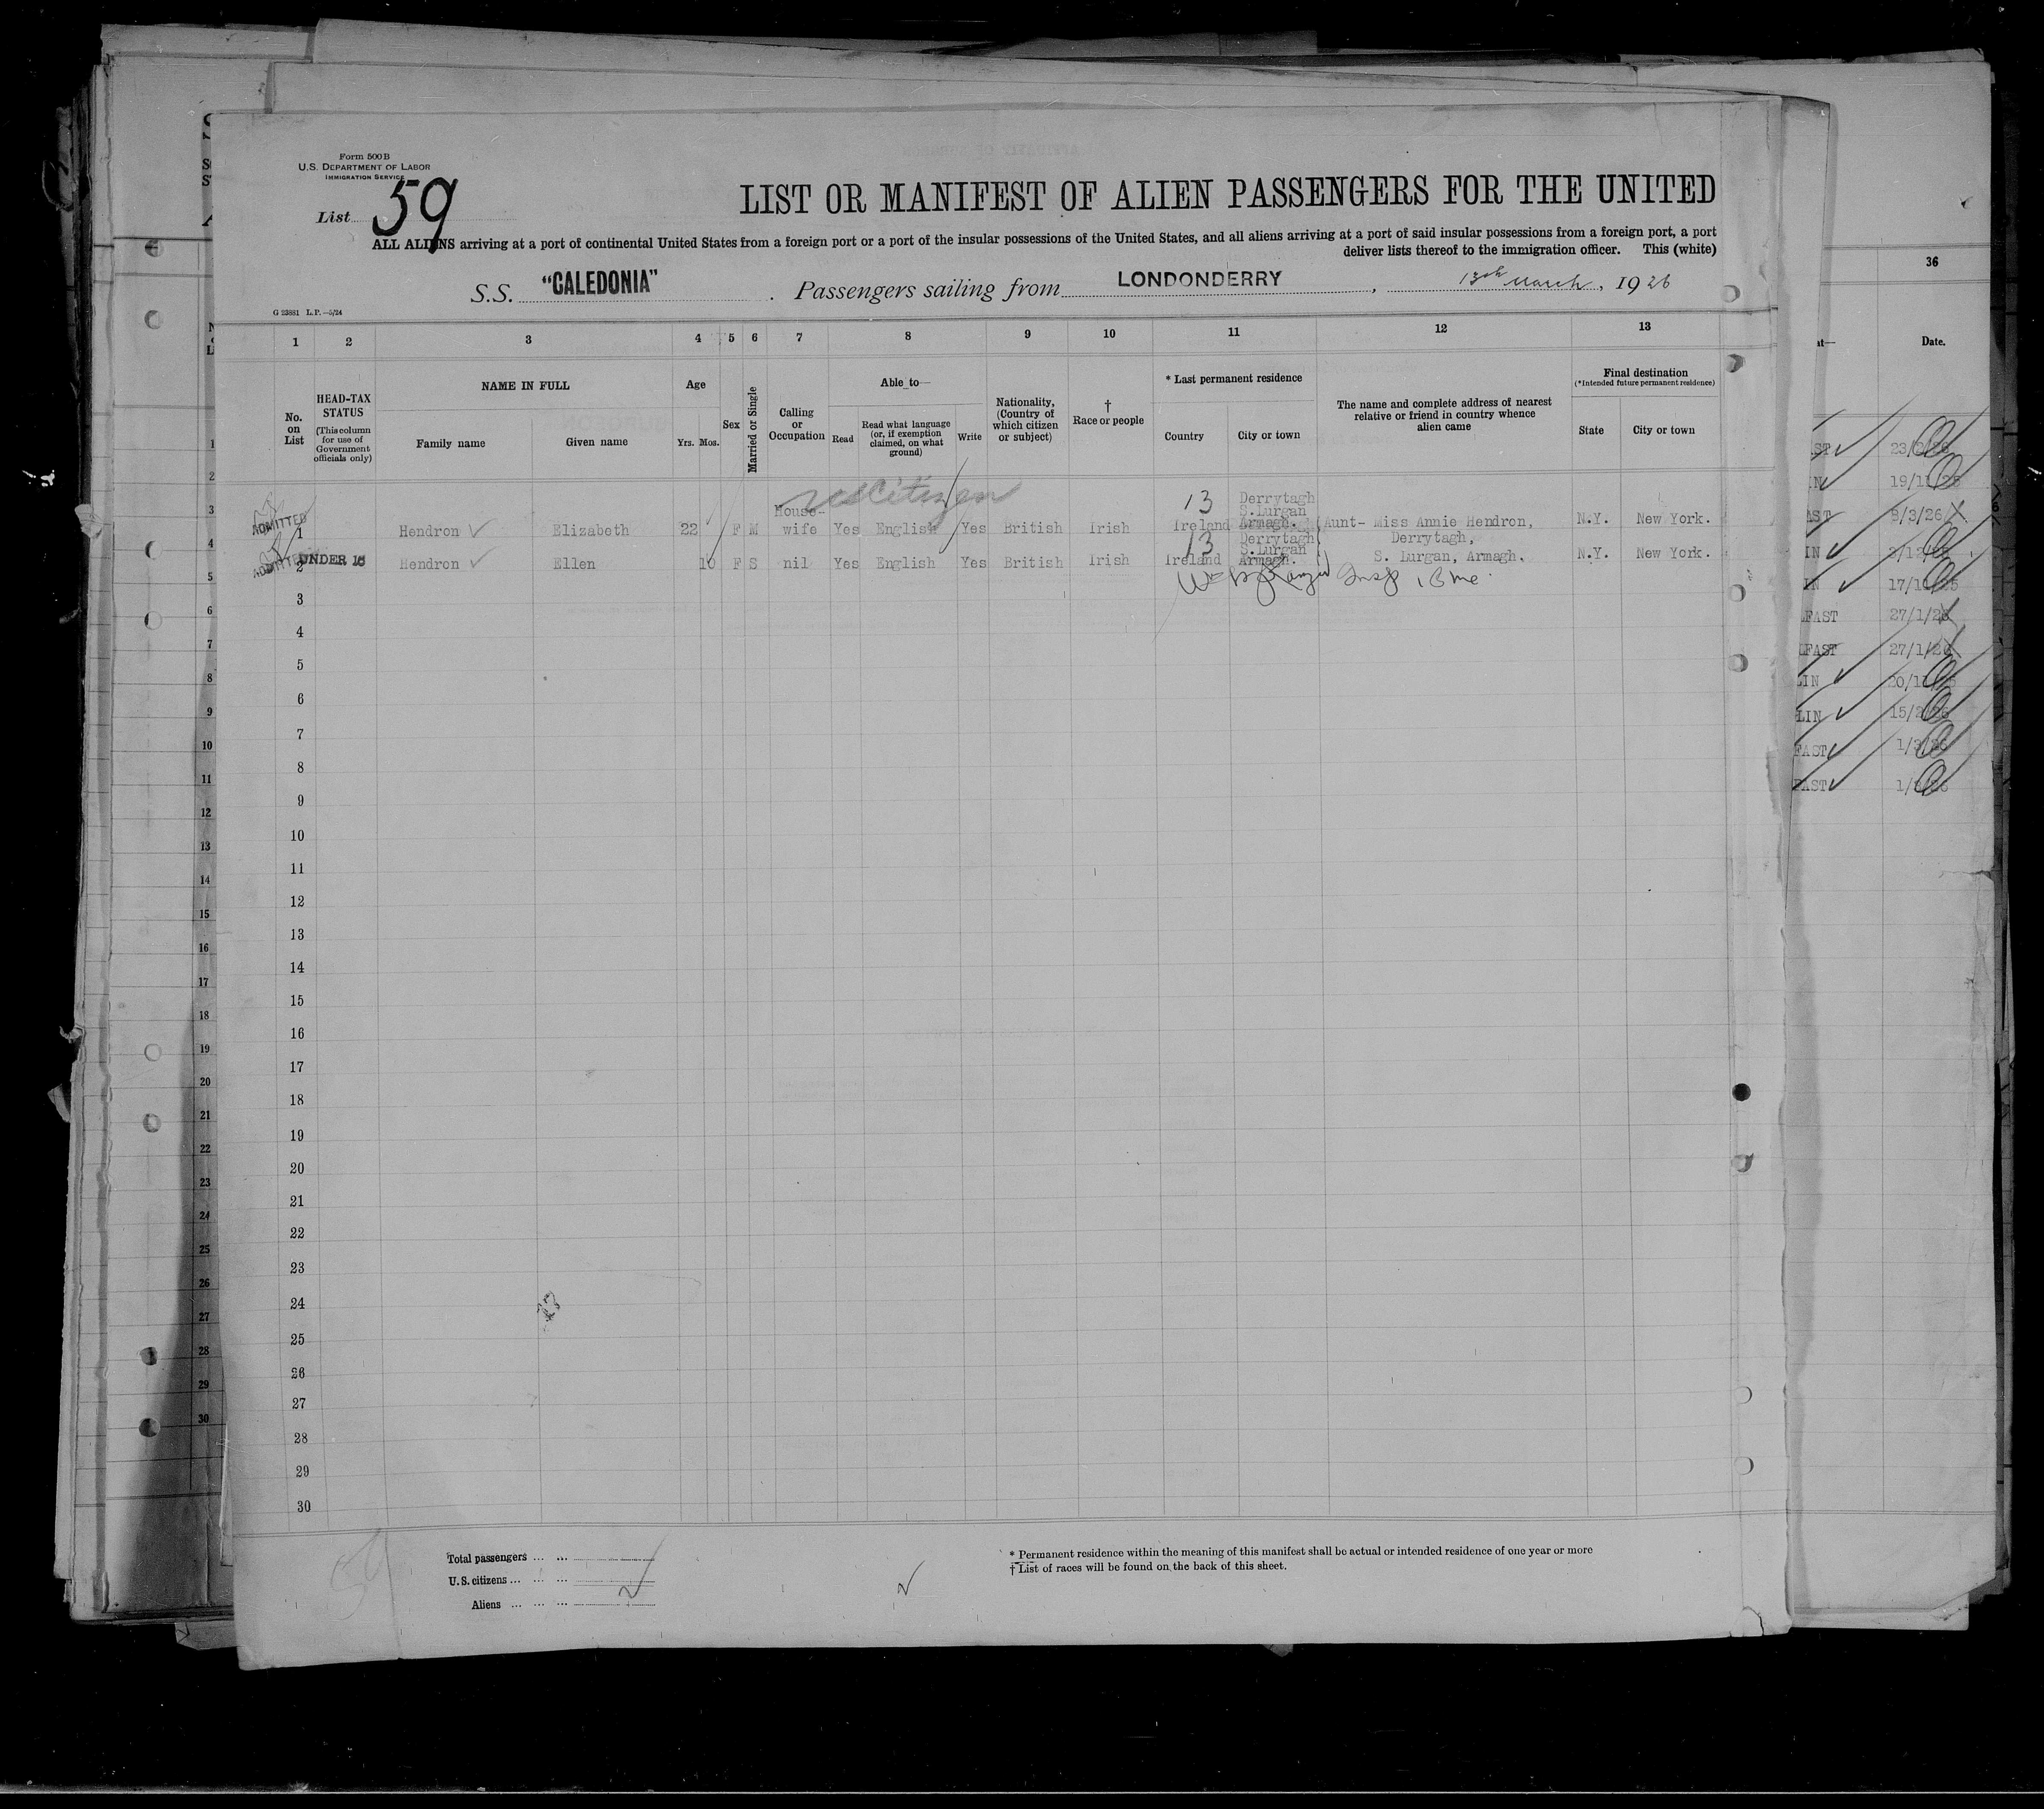 Form 500 B
U.S. DEPARTMENT OF LABOR
IMMIGRATION SERVICE
List 59
LIST OR MANIFEST OF ALIEN PASSENGERS FOR THE UNITED
ALL ALIENS arriving at a port of continental United States from a foreign port or a port of the insular possessions of the United States, and all aliens arriving at a port of said insular possessions from a foreign port, a port
deliver lists thereof to the immigration officer. This (white)
S.S. "CALEDONIA". Passengers sailing from LONDONDERRY, 13th March, 1926
G 23881 L.P.—5/24
1 2 3 4 5 6 7 8 9 10 11 12 13
No. on List
HEAD-TAX STATUS (This column for use of Government officials only)
NAME IN FULL
Family name
Given name
Age
Yrs. Mos.
Sex
Married or Single
Calling or Occupation
Able to—
Read
Read what language (or, if exemption claimed, on what ground)
Write
Nationality, (Country of which citizen or subject)
† Race or people
* Last permanent residence
Country
City or town
The name and complete address of nearest relative or friend in country whence alien came
Final destination
(*Intended future permanent residence)
State
City or town
ADMITTED 1 Hendron Elizabeth 22 F M House-wife Yes English Yes British Irish 13 Ireland Derrytagh S.Lurgan Armagh. Aunt- Miss Annie Hendron, N.Y. New York.
Derrytagh,
ADMITTED 2 UNDER 16 Hendron Ellen 10 F S nil Yes English Yes British Irish 13 Ireland Derrytagh S.Lurgan Armagh. S. Lurgan, Armagh. N.Y. New York.
3
4
5
6
7
8
9
10
11
12
13
14
15
16
17
18
19
20
21
22
23
24
25
26
27
28
29
30
Total passengers ... ...
U.S. citizens ... ... ...
Aliens ... ... ... 2
* Permanent residence within the meaning of this manifest shall be actual or intended residence of one year or more
† List of races will be found on the back of this sheet.
59
36
Date.
19/11/25
8/3/26
17/11/25
FAST 27/1/26
FAST 27/1/26
LIN
LIN 15/2/26
FAST 1/3/26
FAST
1
2
3
4
5
6
7
8
9
10
11
12
13
14
15
16
17
18
19
20
21
22
23
24
25
26
27
28
29
30